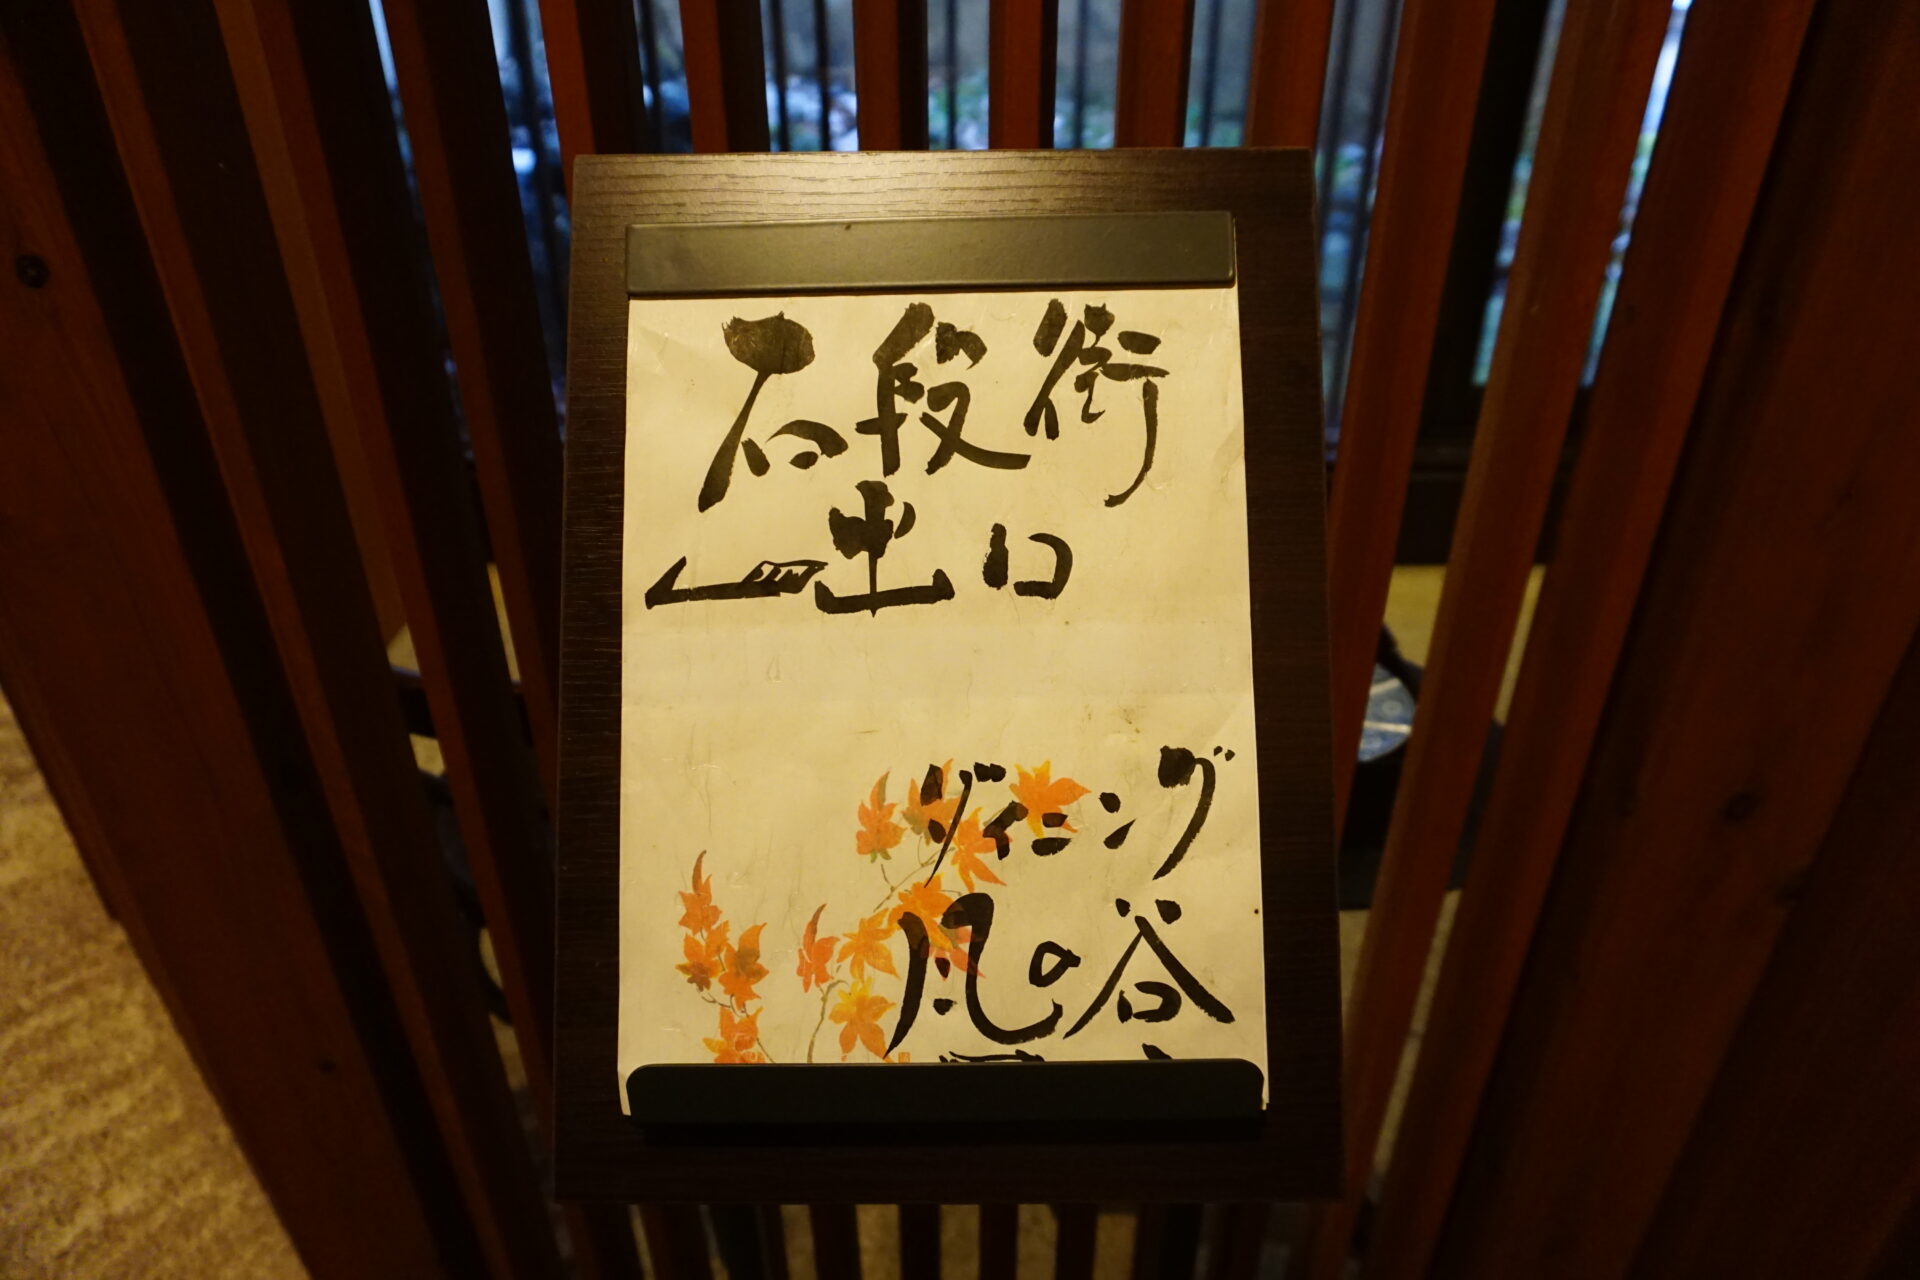 石段街
出口
ダイニング
風の谷